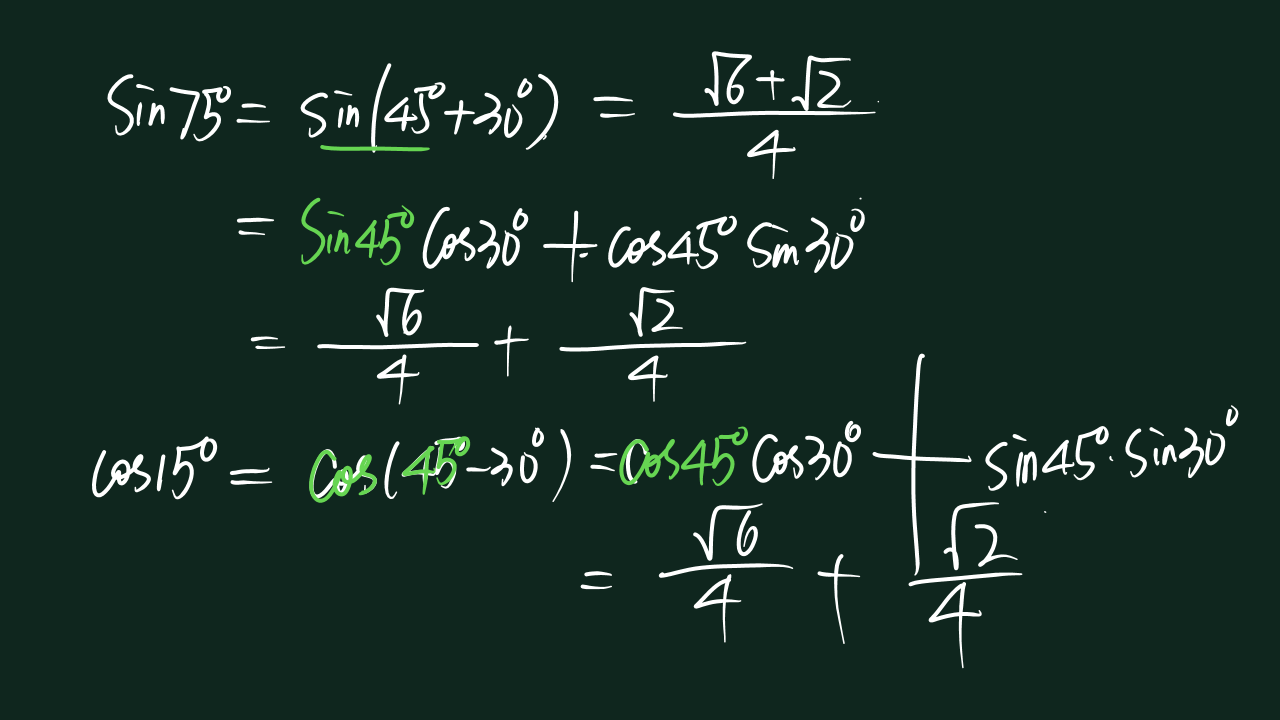 Sin75° = sin(45°+30°) = (√6+√2)/4
= Sin45° Cos30° + cos45° Sin30°
= √6/4 + √2/4
cos15° = cos(45°-30°) = cos45° cos30° + sin45°·sin30°
= √6/4 + √2/4